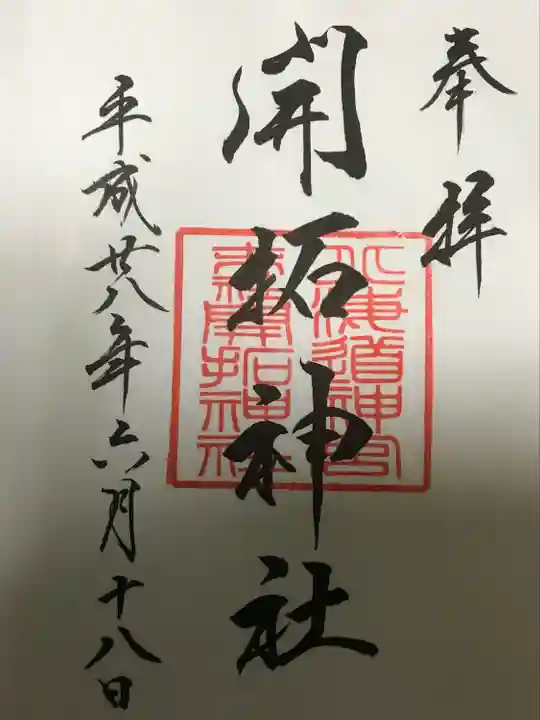 奉拝
開拓神社
北海道神宮
末社開拓神社
平成廿八年六月十八日